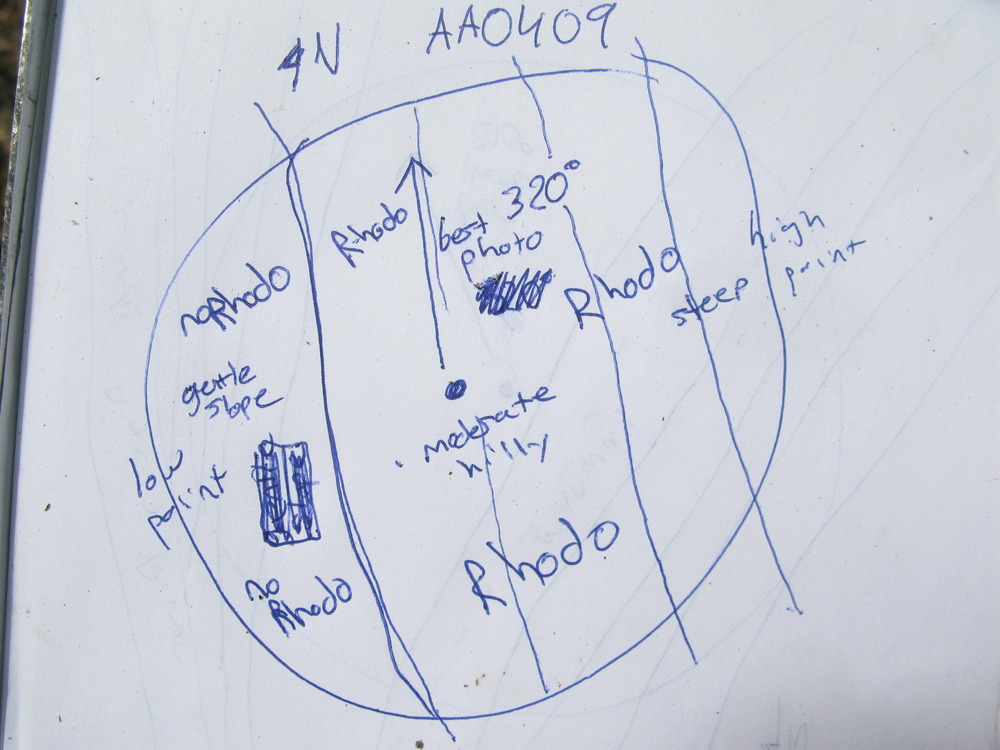 4N AA0409
320°
Rhodo
best
photo
high
point
noRhodo
Rhodo
steep
gentle
slope
moderate
hilly
low
point
Rhodo
no
Rhodo